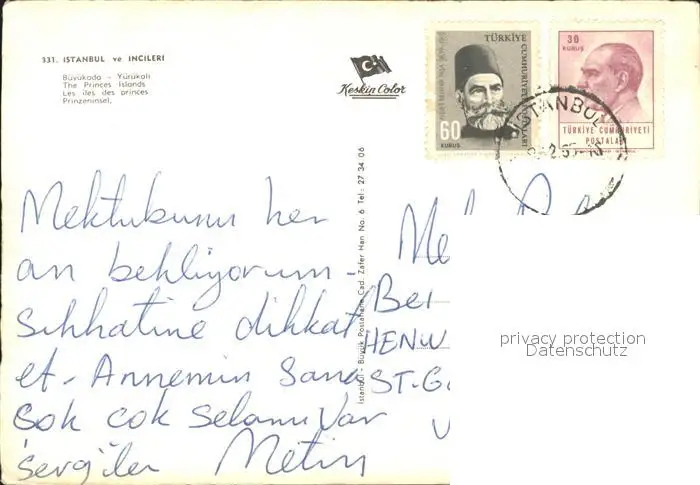 331. İSTANBUL ve INCILERI
Büyükada - Yürükali
The Princes Islands
Les iles des princes
Prinzeninsel.
Keskin Color
TÜRKİYE
CUMHURİYETİ POSTALARI
60
KURUŞ
30
KURUŞ
TÜRKİYE CUMHURİYETİ
POSTALARI
İSTANBUL
İstanbul - Büyük Postahane Cad. Zafer Han No. 6 Tel: 27 34 06
Mektubunu her
an bekliyorum -
sıhhatine dikkat
et - Annemin sana
çok çok selamı var
sevgiler Metin
Me
Bei
HENW
ST-G
privacy protection
Datenschutz